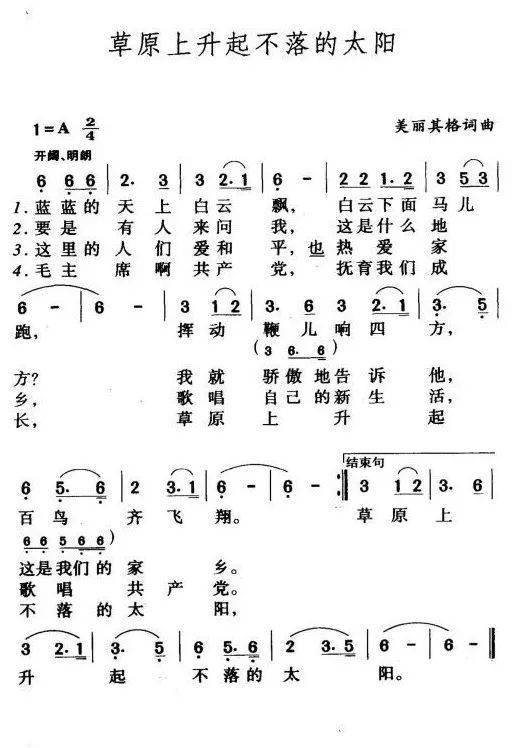 草原上升起不落的太阳
1=A 2/4 美丽其格词曲
开阔、明朗
6 6 6 | 2. 3 | 3 2.1 | 6 - | 2 2 1.2 | 3 5 3 |
1.蓝蓝的 天上 白云 飘, 白云下面 马儿
2.要是 有人来问 我, 这是什么 地
3.这里的 人们爱和 平,也 热爱 家
4.毛主 席啊共产 党, 抚育我们 成
6 - | 6 - | 3 1 2 | 3. 6 | 3 2.1 | 3. 5 |
跑, 挥动 鞭儿响四方,
(3 6. 6)
方? 我就 骄傲地告诉他,
乡, 歌唱 自己的新生活,
长, 草原 上 升起
结束句
6 5. 6 | 2 3.1 | 6 - | 6 - :| 3 1 2 | 3. 6 |
百鸟 齐飞翔。 草原上
6 6 5 6 6)
这是我们的家 乡。
歌唱 共产 党。
不落的太 阳,
3 2.1 | 3. 5 | 6 5.6 | 2 3.5 | 6 - | 6 - ‖
升 起 不落的太 阳。